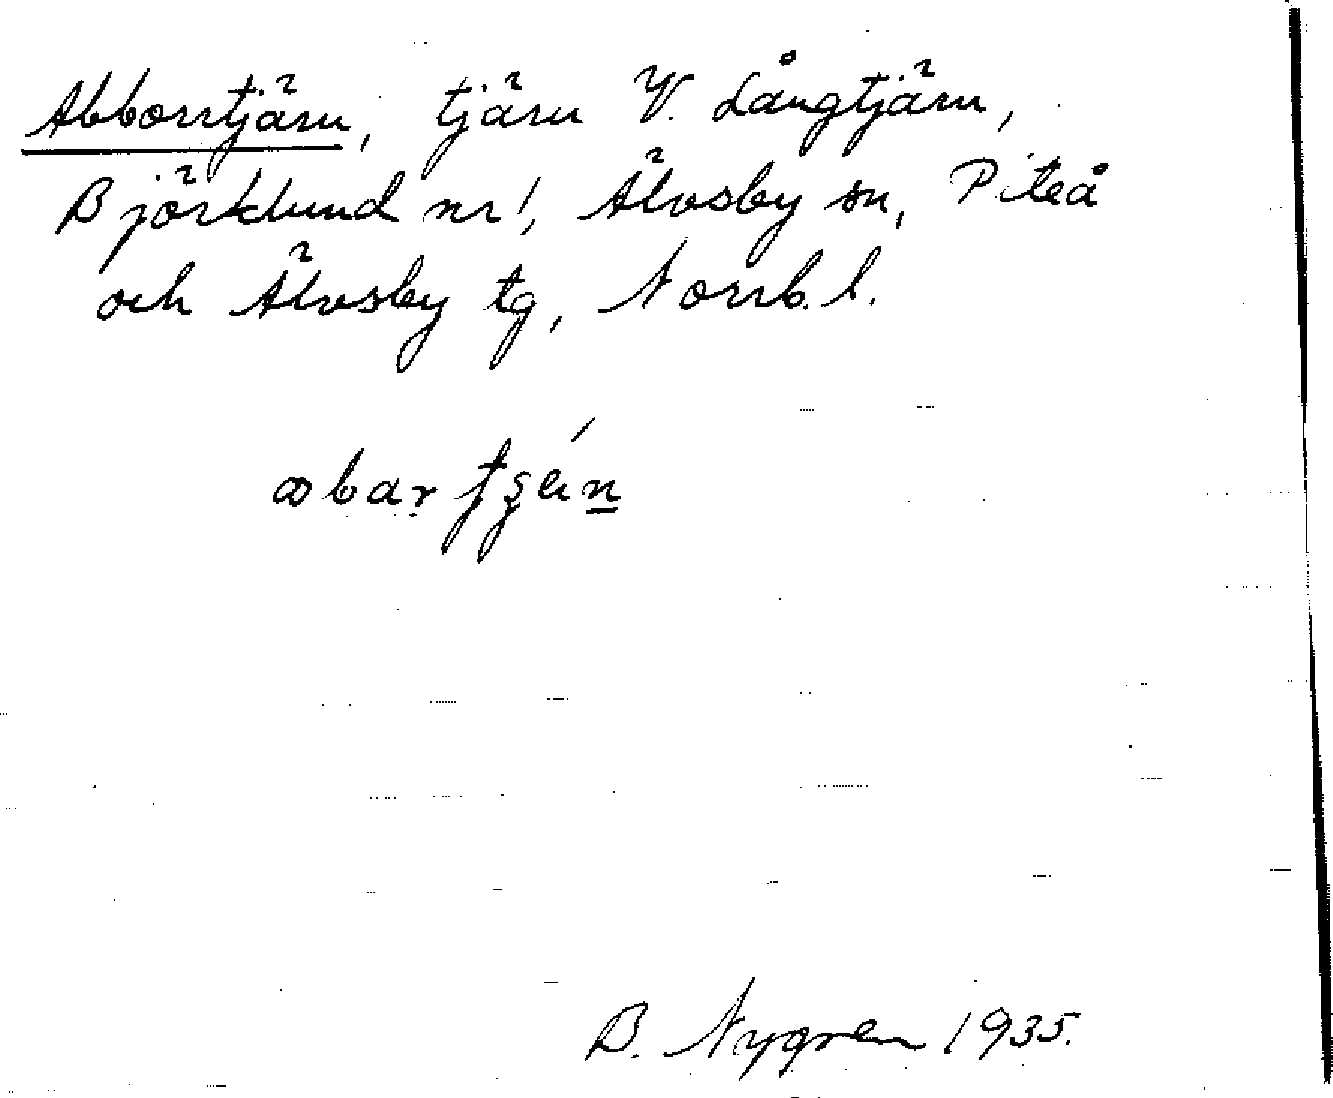 Abborrtjärn, tjärn V. Långtjärn,
Björklund nr 1, Älvsby sn, Piteå
och Älvsby tg, Norrb. l.
B. Nygren 1935.